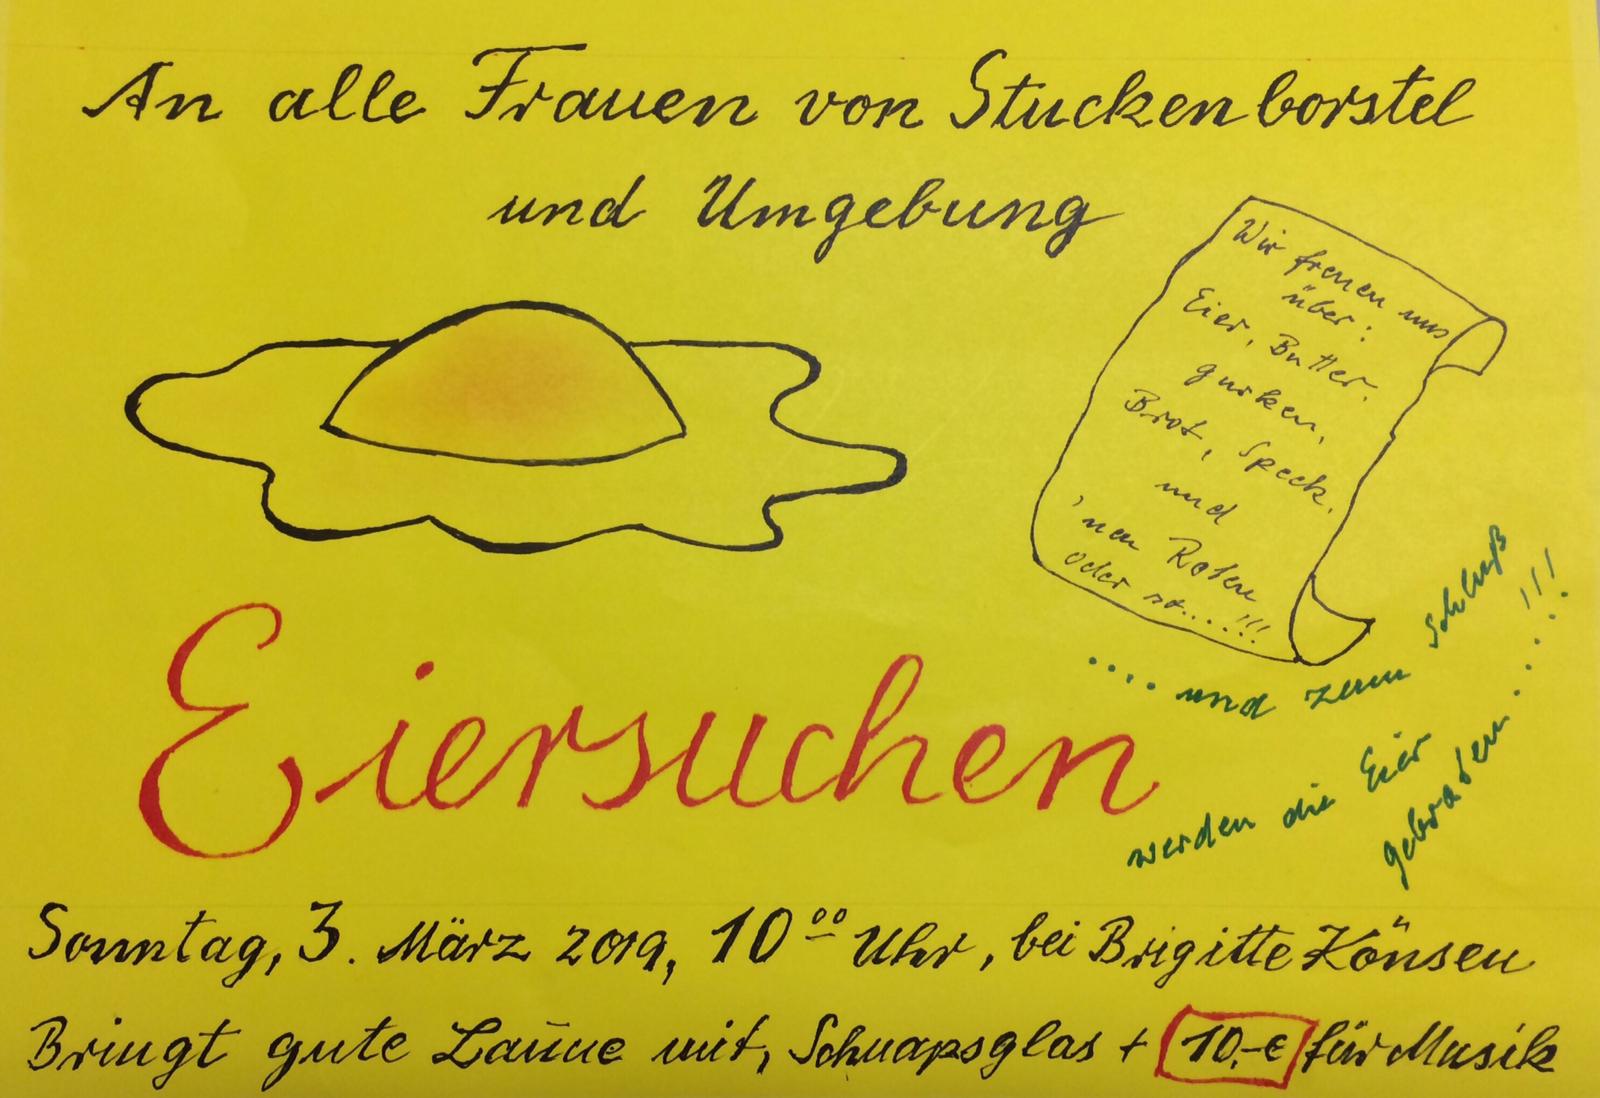 An alle Frauen von Stuckenborstel
und Umgebung
Wir freuen uns
über:
Eier, Butter,
gurken,
Brot, Speck,
und
'nen Roten
oder so....!!!
.... und zum Schluß
werden die Eier
gebraten.....!!!
Eiersuchen
Sonntag, 3. März 2019, 10⁰⁰ Uhr, bei Brigitte Könsen
Bringt gute Laune mit, Schnapsglas + 10,-€ für Musik